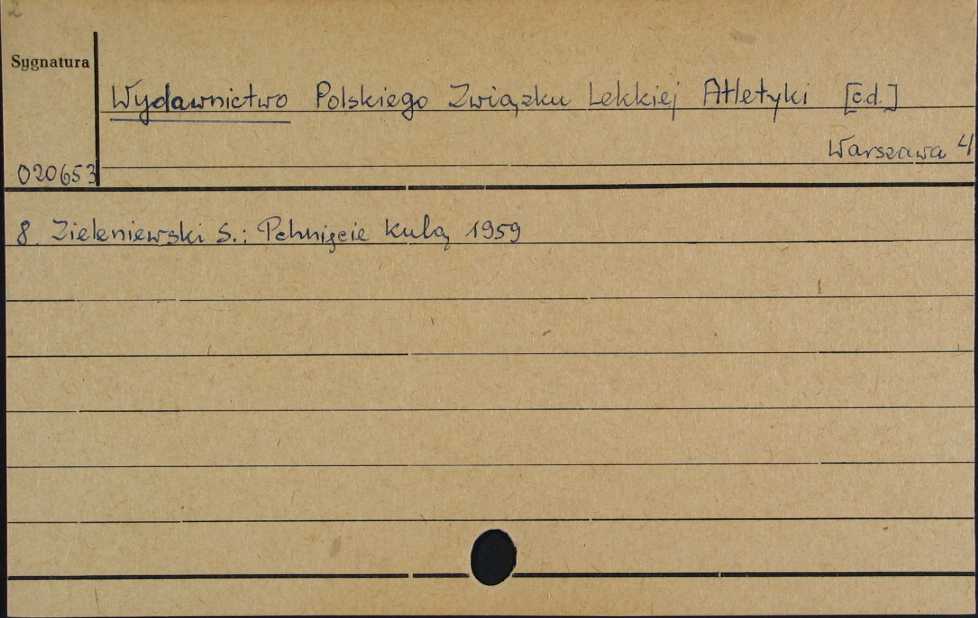 2
Sygnatura
Wydawnictwo Polskiego Związku Lekkiej Atletyki [c.d.]
Warszawa 4
020653
8. Zieleniewski S.: Pchnięcie kulą 1959